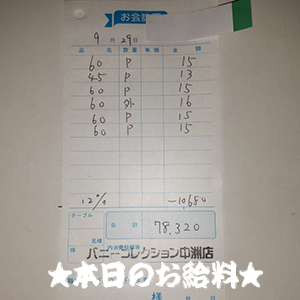 お会計票
9月29日
品名 数量 単価 金額
60 P 15
45 P 13
60 P 15
60 外 16
60 P 15
60 P 15
12% -10,680
テーブル
合計 78,320
名様
バニーコレクション中洲店
★本日のお給料★
様
月